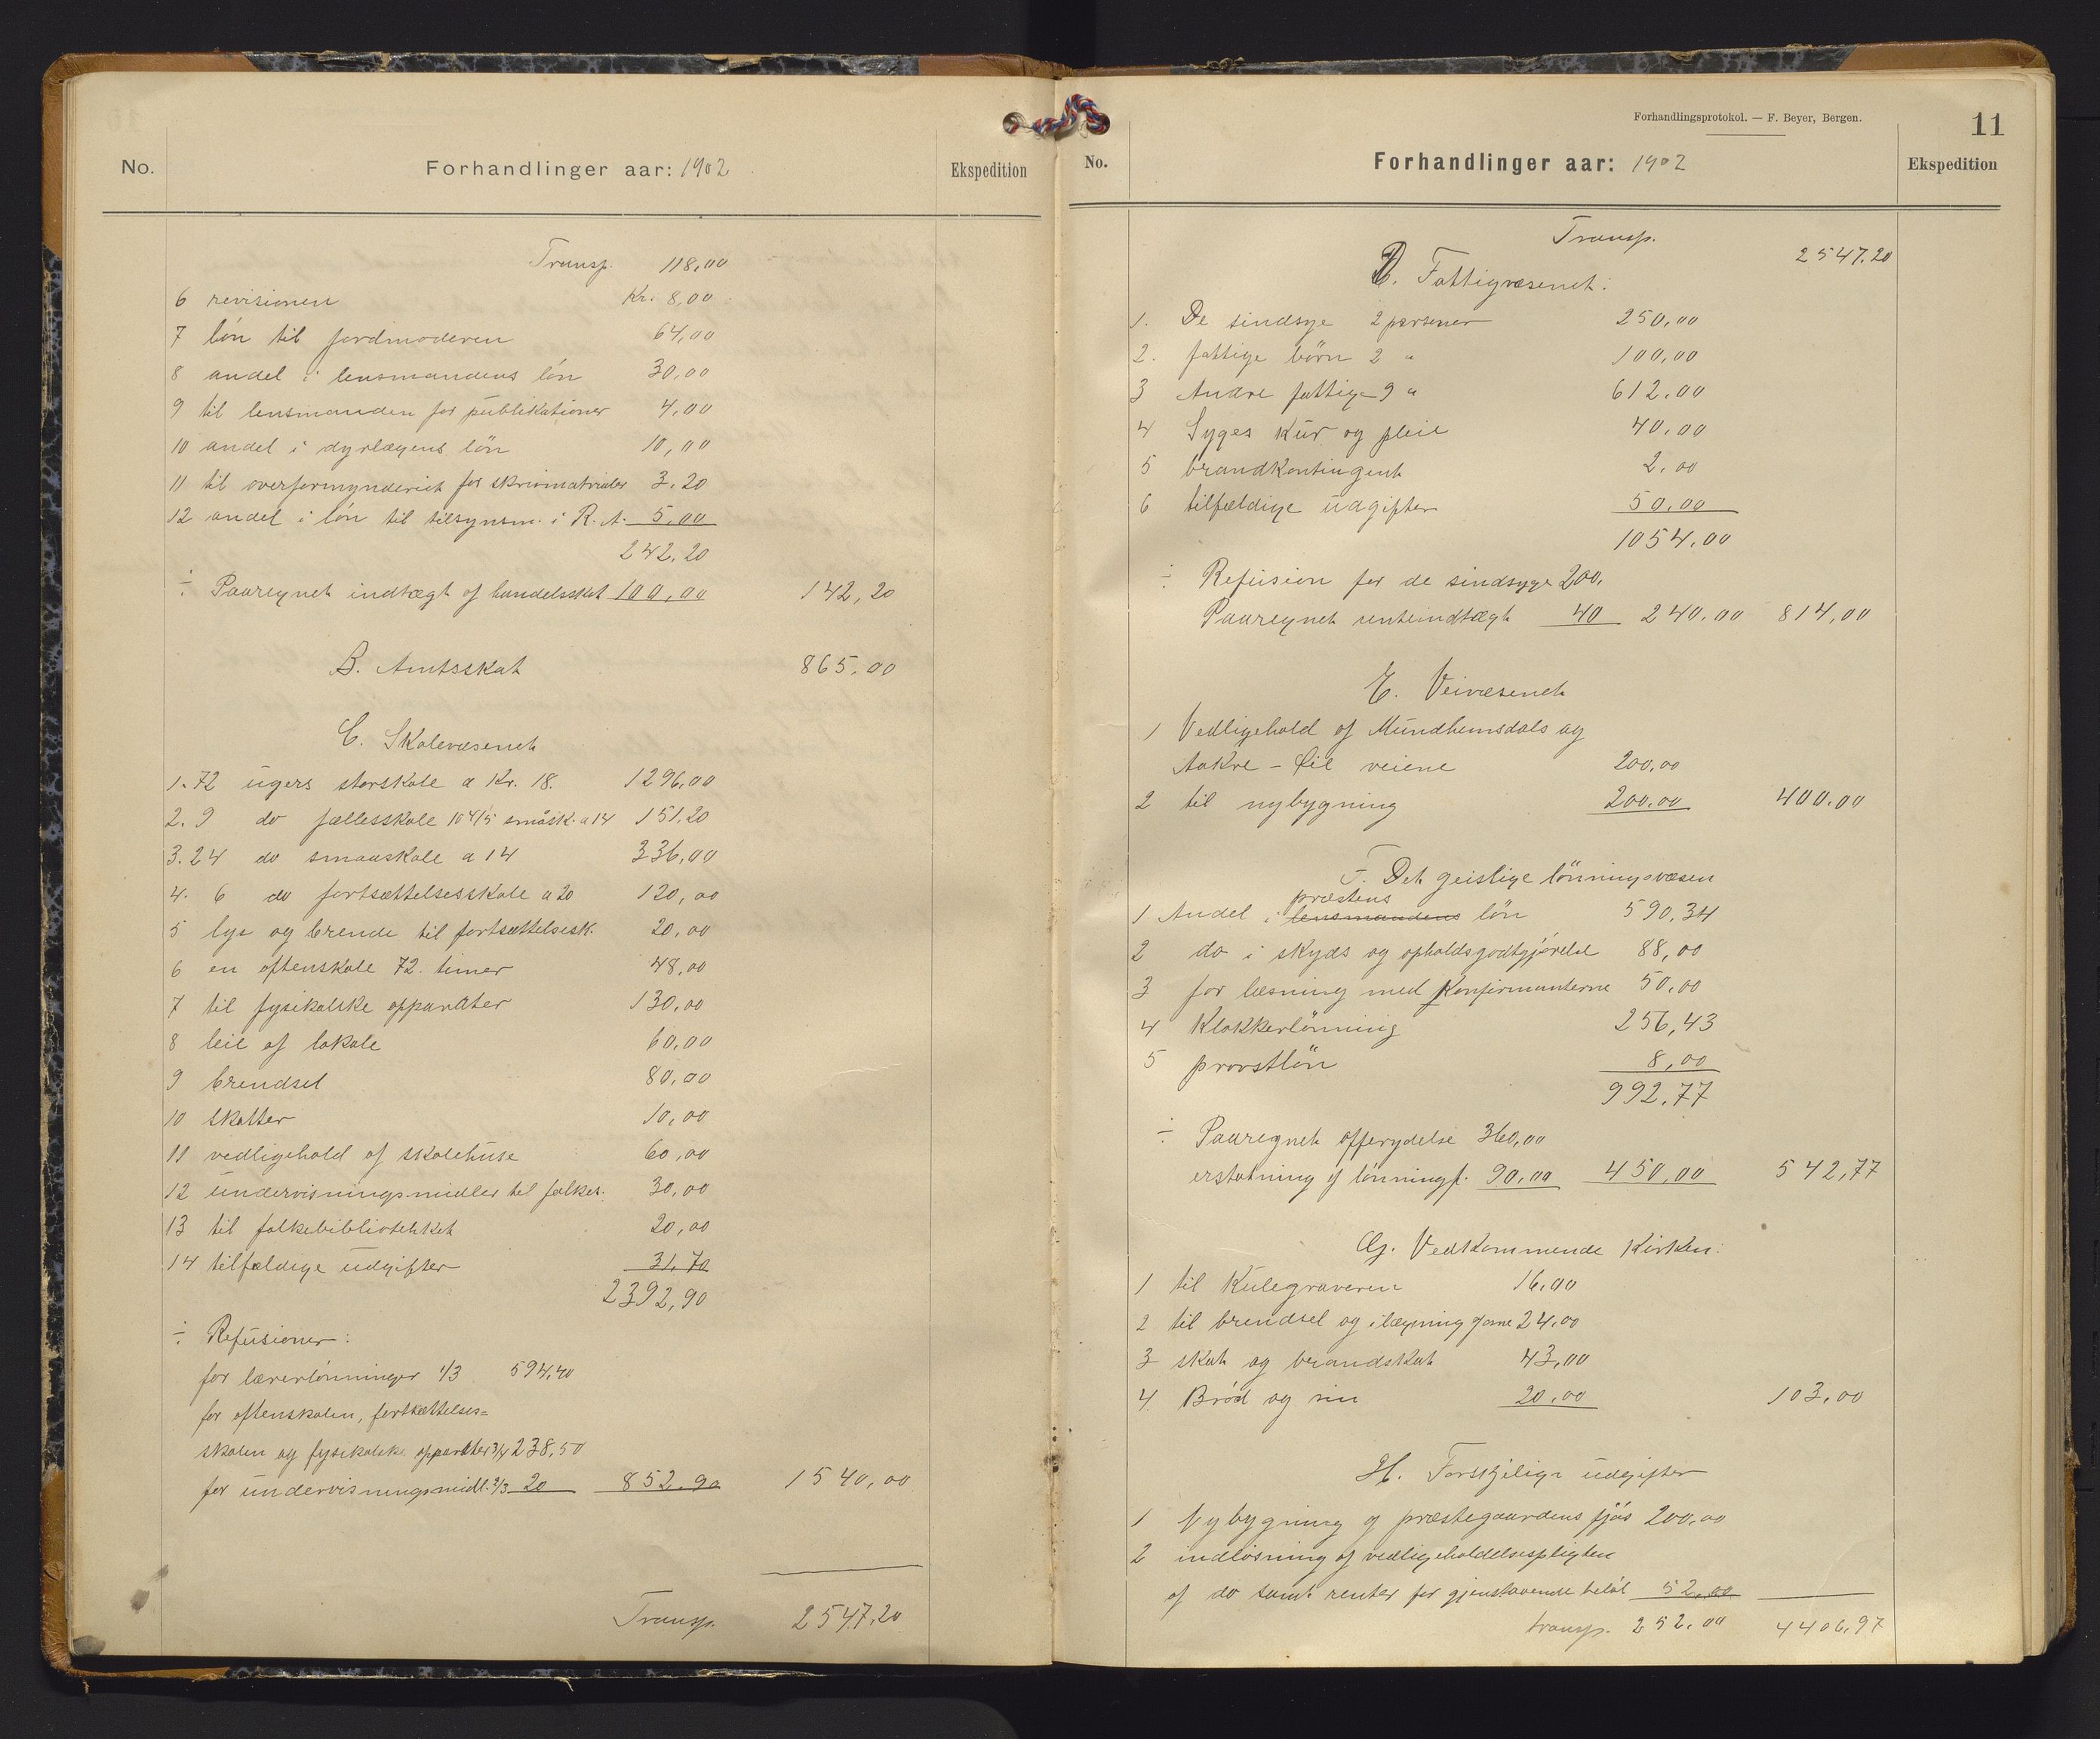 No. Forhandlinger aar: 1902 Ekspedition
Transp. 118,00
6 revisionen Kr. 8,00
7 løn til jordmoderen 64,00
8 andel i lensmandens løn 30,00
9 til lensmanden for publikationer 4,00
10 andel i dyrlægens løn 10,00
11 til overformynderiet for skrivmatrialer 3.20
12 andel i løn til tilsynsm. i R. A. 5,00
242,20
÷ Paaregnet indtægt af handelsskat 100,00 142,20
B. Amtsskat 865,00
C. Skolevæsenet
1. 72 ugers storskole a Kr. 18. 1296,00
2. 9 do fællesskole 10 4/5 småsk. a 14 151,20
3. 24 do smaaskole a 14 336,00
4. 6 do fortsættelsesskole a 20 120,00
5 lys og brende til fortsættelsesk. 20,00
6 en aftenskole 72 timer 48,00
7 til fysikalske apparater 130,00
8 leie af lokale 60,00
9 brendsel 80,00
10 skatter 10,00
11 vedligehold af skolehuse 60,00
12 undervisningsmidler til folkes. 30,00
13 til folkebibliotekket 20,00
14 tilfældige udgifter 31,70
2392,90
÷ Refusioner:
for lærerlønninger 1/3 594,40
for aftenskolen, fortsættelses=
skolen og fysikalske apparater 3/4 238,50
for undervisningsmidl. 2/3 20 852.90 1540,00
Transp. 2547,20
Forhandlingsprotokol. — F. Beyer, Bergen.
11
No. Forhandlinger aar: 1902 Ekspedition
Transp. 2547.20
D. Fattigvæsenet:
1. De sindsye 2 personer 250,00
2. fattige børn 2 " 100,00
3 Andre fattige 9 " 612,00
4 Syges kur og pleie 40,00
5 brandkontingent 2,00
6 tilfældige udgifter 50,00
1054,00
÷ Refusion for de sindsyge 200.
Paaregnet renteindtægt 40 240,00 814,00
E. Veivæsenet
1 Vedligehold af Mundhemsdals og
Aakre - Øie veiene 200,00
2 til nybygning 200.00 400.00
F. Det geistlige lønningsvæsen
præstens
1 Andel i lensmandens løn 590,34
2 do i skyds og opholdsgodtgjørelse 88,00
3 for læsning med Konfirmanterne 50,00
4 Klokkerlønning 256,43
5 provstløn 8,00
992,77
÷ Paaregnet offerydelse 360,00
erstatning af lønningsf. 90,00 450,00 542,77
G. Vedkommende Kirken:
1 til Kulegraveren 16,00
2 til brendsel og ilægning ovne 24,00
3 skat og brandskat 43,00
4 Brød og vin 20,00 103,00
H. Forskjelige udgifter
1 Nybygning af præstegaardens fjøs 200,00
2 indløsning af vedligeholdelsespligten
af do samt renter for gjenstaaende beløb 52,00
transp. 252.00 4406,97